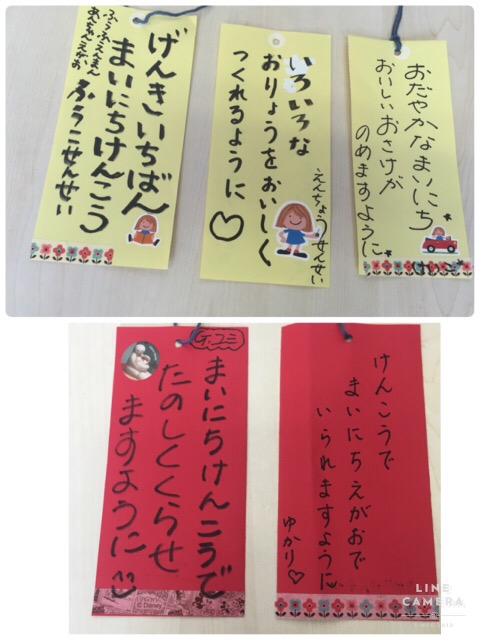 げんきいちばん
まいにちけんこう
ふうこせんせい
いろいろな
おりょうをおいしく
つくれるように♡
えんちょうせんせい
おだやかなまいにち
おいしいおさけが
のめますように
けいこ
G.ユミ
まいにちけんこうで
たのしくくらせ
ますように
© Disney
けんこうで
まいにちえがおで
いられますように
ゆかり♡
LINE
CAMERA